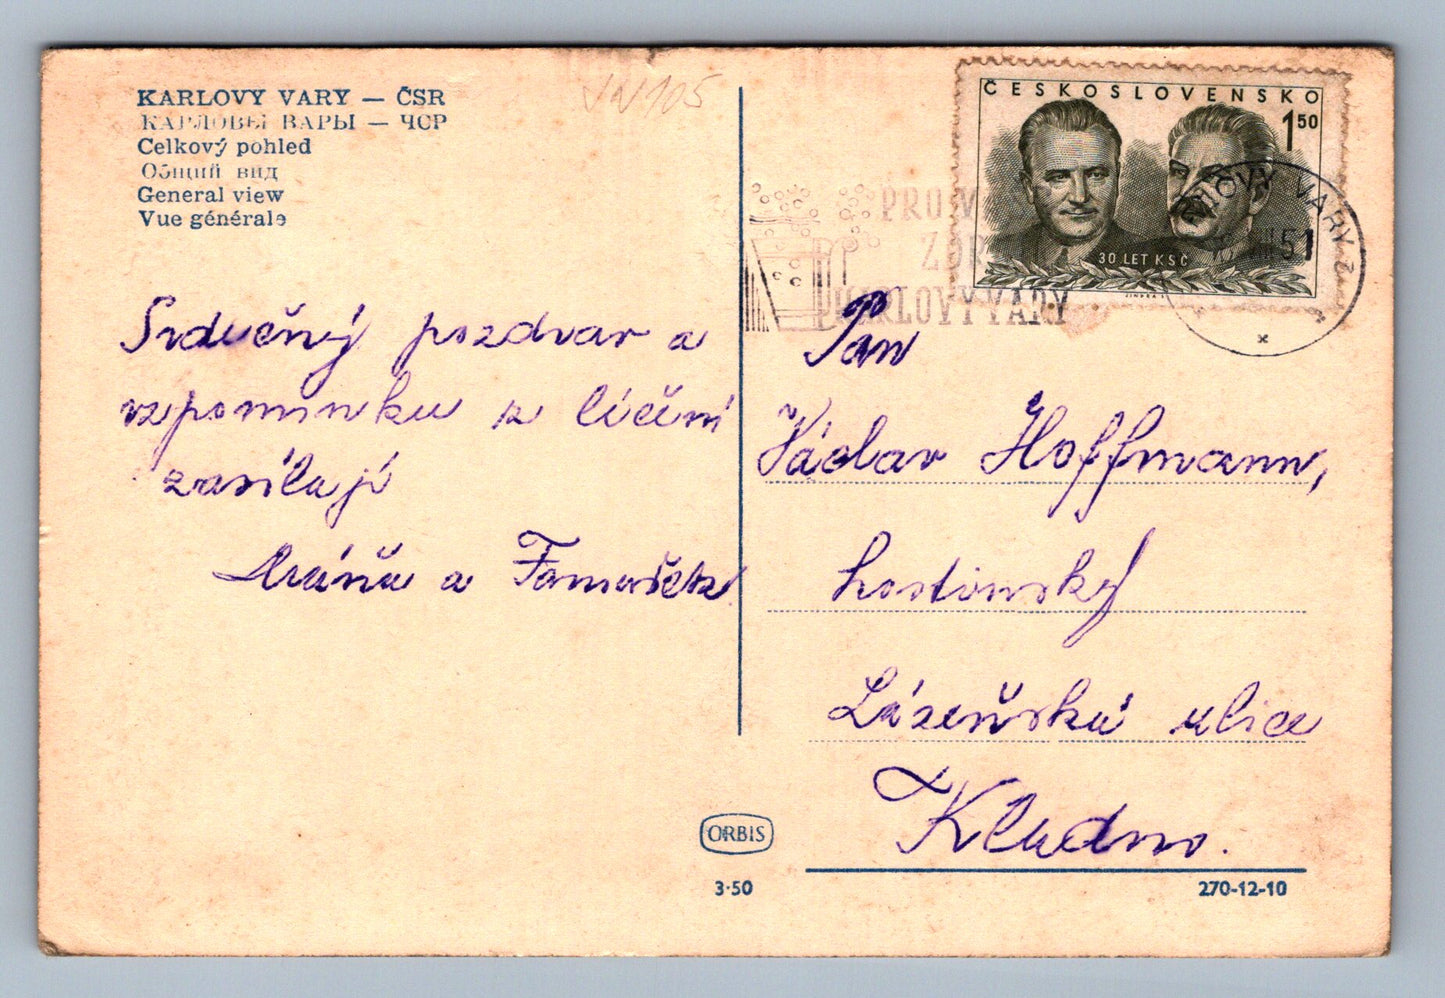 KARLOVY VARY — ČSR
КАРЛОВЫ ВАРЫ — ЧСР
Celkový pohled
Общий вид
General view
Vue générale
VN 105
ČESKOSLOVENSKO
1 50
30 LET KSČ
PRO V
ZDR
KARLOVY VARY
KARLOVY VARY 2
51
Srdečný pozdrav a
vzpomínku z léčení
zasílají
Máňa a Tomašek
Pan
Václav Hoffmann,
hostinský
Lázeňská ulice
Kladno.
ORBIS
3·50
270-12-10